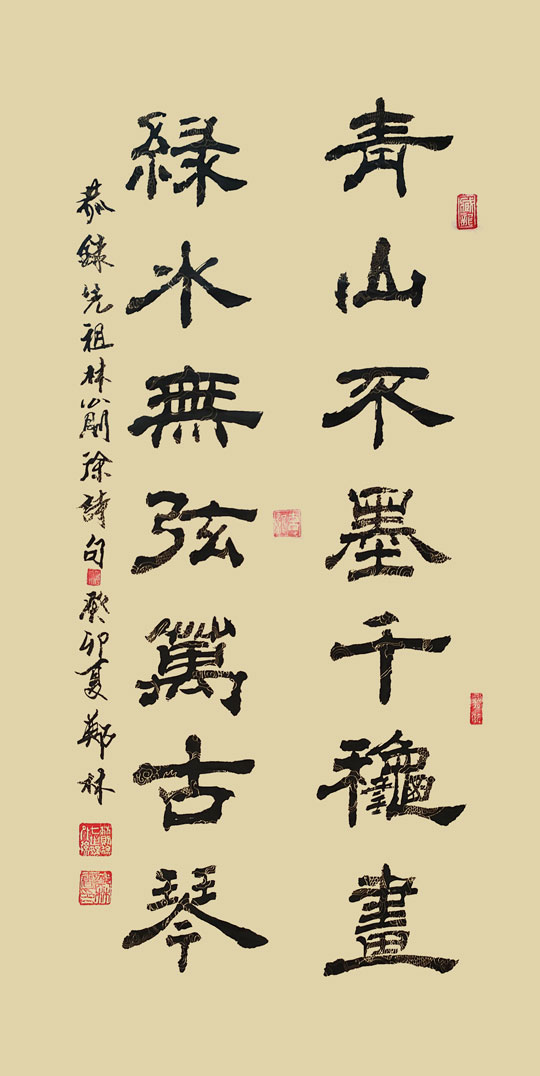 青山不墨千穐畫
綠水無弦萬古琴
恭錄先祖林公則徐詩句 癸卯夏 鄭林